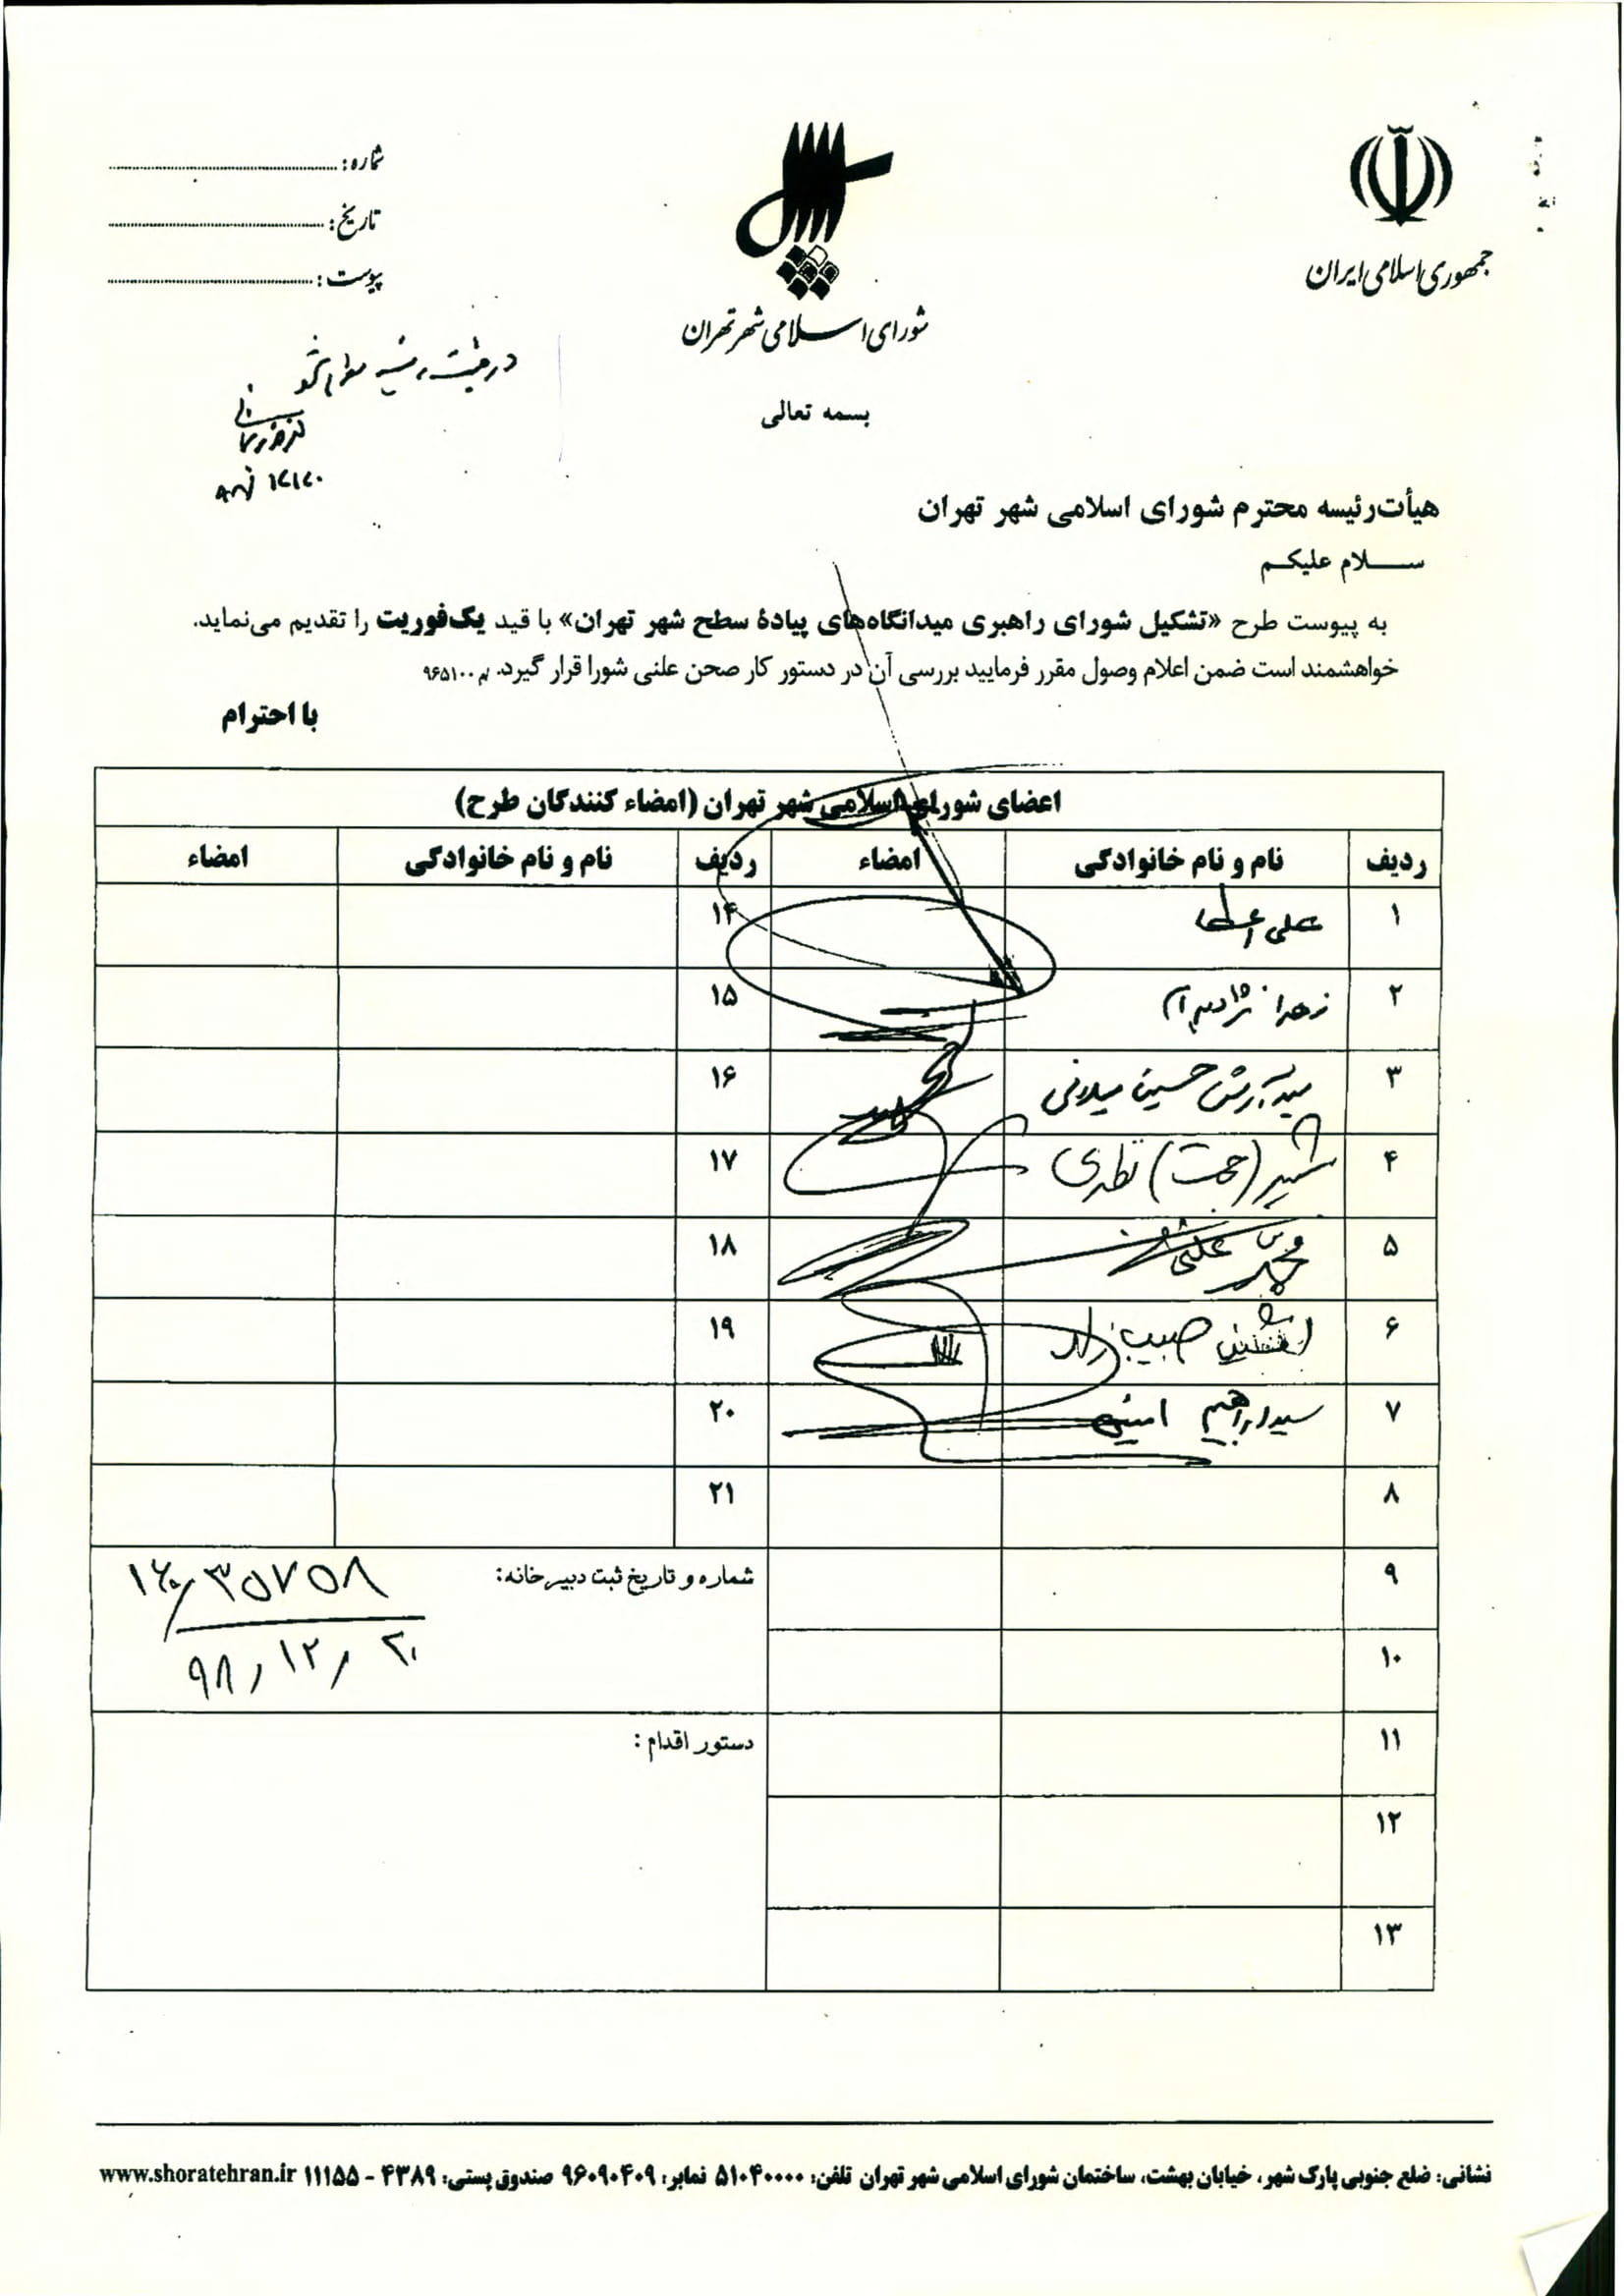 جمهوری اسلامی ایران
شورای اسلامی شهر تهران
شماره:
تاریخ:
پیوست:
بسمه تعالی
هیأت‌رئیسه محترم شورای اسلامی شهر تهران
ســـلام علیکــم
به پیوست طرح «تشکیل شورای راهبری میدانگاه‌های پیادهٔ سطح شهر تهران» با قید یک‌فوریت را تقدیم می‌نماید.
خواهشمند است ضمن اعلام وصول مقرر فرمایید بررسی آن در دستور کار صحن علنی شورا قرار گیرد. م/۹۶۵۱۰۰
با احترام
اعضای شورای اسلامی شهر تهران (امضاء کنندگان طرح)
ردیف نام و نام خانوادگی امضاء ردیف نام و نام خانوادگی امضاء
۱ علی اعطا ۱۴
۲ زهرا نژاد بهرام ۱۵
۳ سید آرش حسینی میلانی ۱۶
۴ (حجت) نظری ۱۷
۵ محمد علیخانی ۱۸
۶ افشین حبیب زاده ۱۹
۷ سید ابراهیم امینی ۲۰
۸ ۲۱
۹ شماره و تاریخ ثبت دبیرخانه: ۱۶۰/۳۵۷۵۸
۱۰ ۹۸/۱۲/۲۰
۱۱ دستور اقدام :
۱۲
۱۳
نشانی: ضلع جنوبی پارک شهر، خیابان بهشت، ساختمان شورای اسلامی شهر تهران تلفن: ۵۱۰۴۰۰۰۰ نمابر: ۹۶۰۹۰۴۰۹ صندوق پستی: ۴۳۸۹ - ۱۱۱۵۵ www.shoratehran.ir